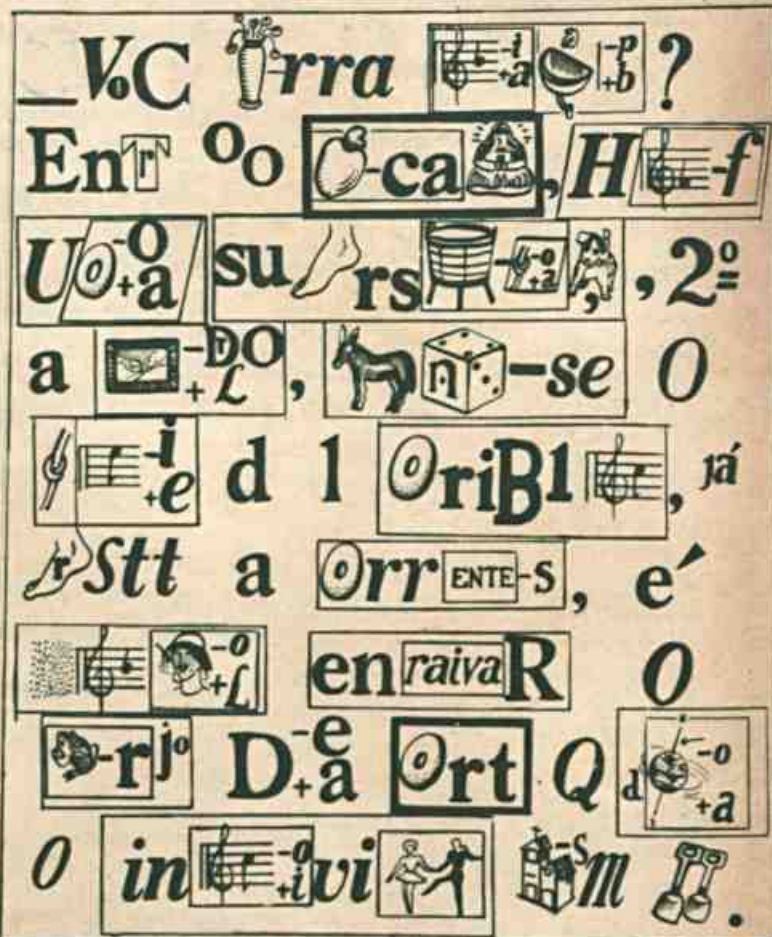 VoC rra -i +a a -p +b ?
En r oo -ca , H -f
U -O +a su rs -o +a , , 2º
a -DO + L , n -se O
-i +e d l riBl , já
r Stt a rr ENTE -s , e´
-o +L en raiva R O
-r jº D -e +a rt Q d -o +a
O in -o +i vi -s m .